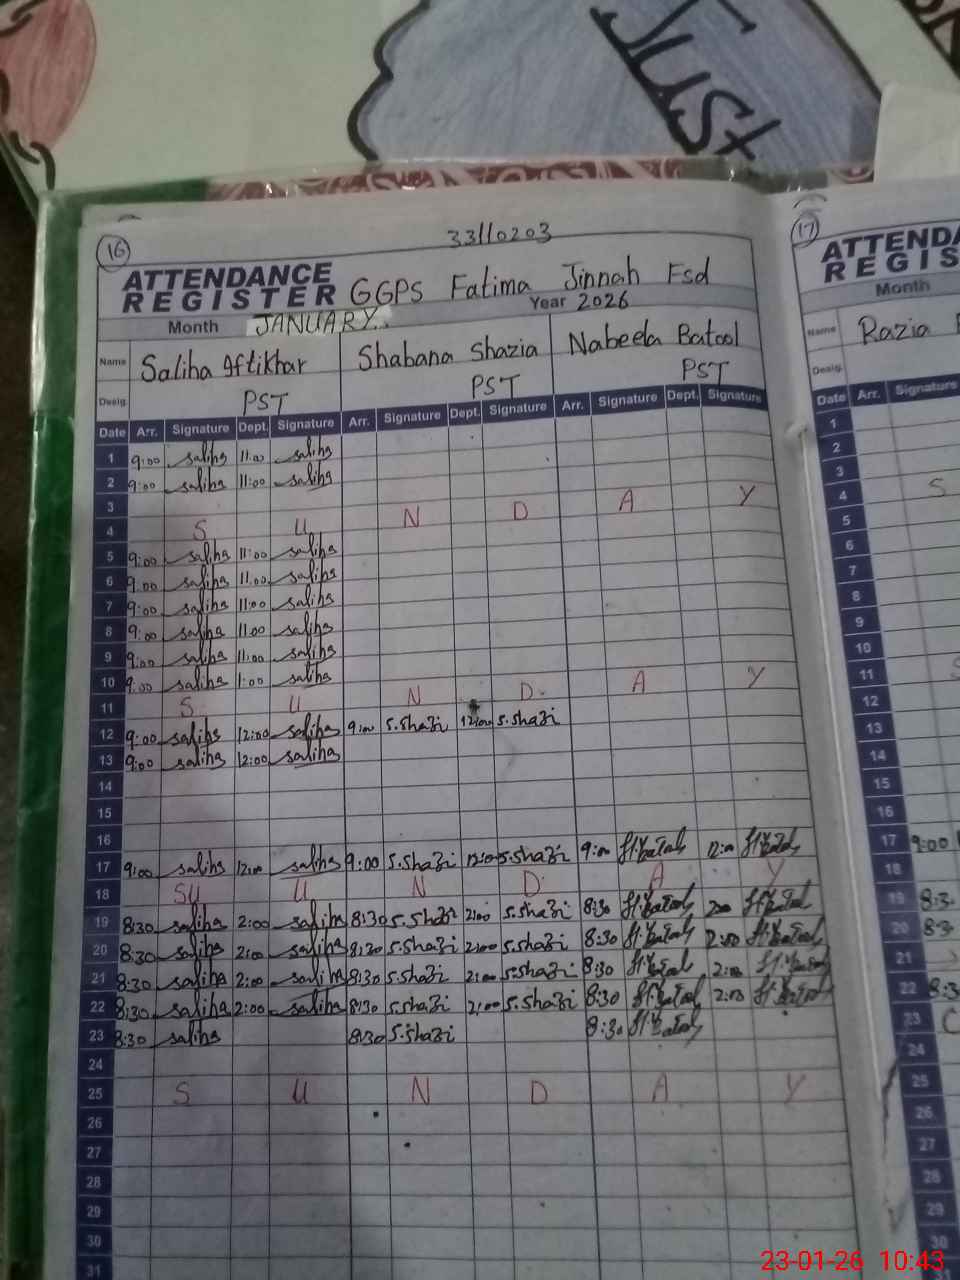 Just
16
33110203
ATTENDANCE
REGISTER GGPS Fatima Jinnah Fsd
Month JANUARY. Year 2026
Name Saliha Iftikhar Shabana Shazia Nabeela Batool
Desig. PST PST PST
Date Arr. Signature Dept. Signature Arr. Signature Dept. Signature Arr. Signature Dept. Signature
1 9:00 saliha 11:00 saliha
2 9:00 saliha 11:00 saliha
3
4 S U N D A Y
5 9:00 saliha 11:00 saliha
6 9:00 saliha 11:00 saliha
7 9:00 saliha 11:00 saliha
8 9:00 saliha 11:00 saliha
9 9:00 saliha 11:00 saliha
10 9:00 saliha 1:00 saliha
11 S U N D A Y
12 9:00 saliha 12:00 saliha 9:00 S.Shazi 12:00 S.Shazi
13 9:00 saliha 12:00 saliha
14
15
16
17 9:00 saliha 12:00 saliha 9:00 S.Shazi 12:00 S.Shazi 9:00 12:00
18 SU U N D A Y
19 8:30 saliha 2:00 saliha 8:30 S.Shazi 2:00 S.Shazi 8:30 2:00
20 8:30 saliha 2:00 saliha 8:30 S.Shazi 2:00 S.Shazi 8:30 2:00
21 8:30 saliha 2:00 saliha 8:30 S.Shazi 2:00 S.Shazi 8:30 2:00
22 8:30 saliha 2:00 saliha 8:30 S.Shazi 2:00 S.Shazi 8:30 2:00
23 8:30 saliha 8:30 S.Shazi 8:30
24
25 S U N D A Y
26
27
28
29
30
31
17
ATTENDA
REGIS
Month
Name Razia
Desig.
Date Arr. Signature
1
2
3
4 S
5
6
7
8
9
10
11 S
12
13
14
15
16
17 9:00
18
19 8:3
20 8:3
21
22 8:3
23
24
25
26
27
28
29
30
23-01-26 10:43